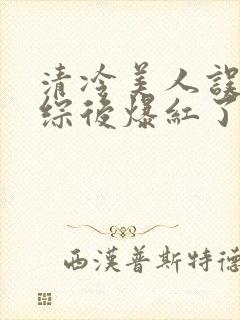 清冷美人誤
綜後爆紅了
西漢普斯特德